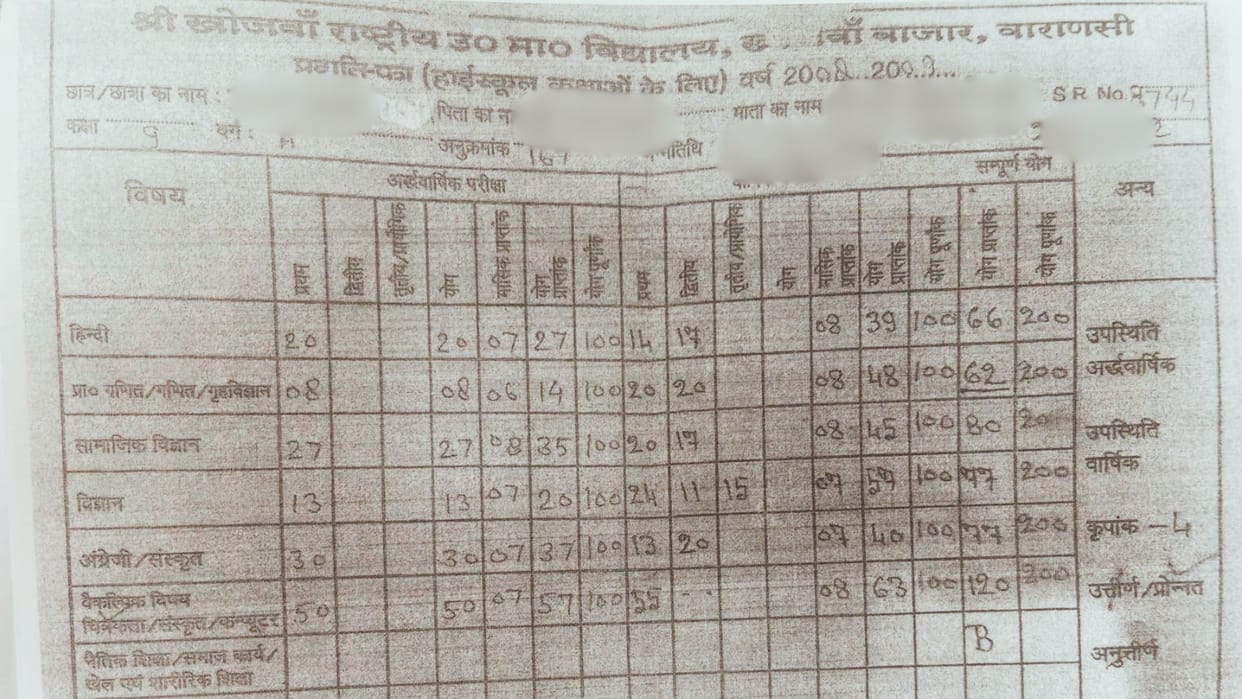 श्री खोजवाँ राष्ट्रीय उ० मा० विद्यालय, वाँ बाजार, वाराणसी
प्रगति-पत्र (हाईस्कूल कक्षाओं के लिए) वर्ष 2008..2009...
छात्र/छात्रा का नाम : पिता का ना माता का नाम S R No.
कक्षा 9 वर्ग : A अनुक्रमांक
विषय अर्द्धवार्षिक परीक्षा सम्पूर्ण योग अन्य
प्रथम द्वितीय तृतीय/प्रायोगिक योग मासिक प्राप्तांक योग प्राप्तांक योग पूर्णांक प्रथम द्वितीय तृतीय/प्रायोगिक योग मासिक प्राप्तांक योग प्राप्तांक योग पूर्णांक योग प्राप्तांक योग पूर्णांक
हिन्दी 20 20 07 27 100 14 17 08 39 100 66 200 उपस्थिति
प्रा० गणित/गणित/गृहविज्ञान 08 08 06 14 100 20 20 08 48 100 62 200 अर्द्धवार्षिक
सामाजिक विज्ञान 27 27 08 35 100 20 17 08 45 100 80 20 उपस्थिति
वार्षिक
विज्ञान 13 13 07 20 100 24 11 15 07 57 100 77 200
अंग्रेजी/संस्कृत 30 30 07 37 100 13 20 07 40 100 77 200 कृपांक - 4
वैकल्पिक विषय
चित्रकला/संस्कृत/कम्प्यूटर 50 50 07 57 100 55 -- 08 63 100 120 200 उत्तीर्ण/प्रोन्नत
नैतिक शिक्षा/समाज कार्य/ B अनुत्तीर्ण
खेल एवं शारीरिक शिक्षा